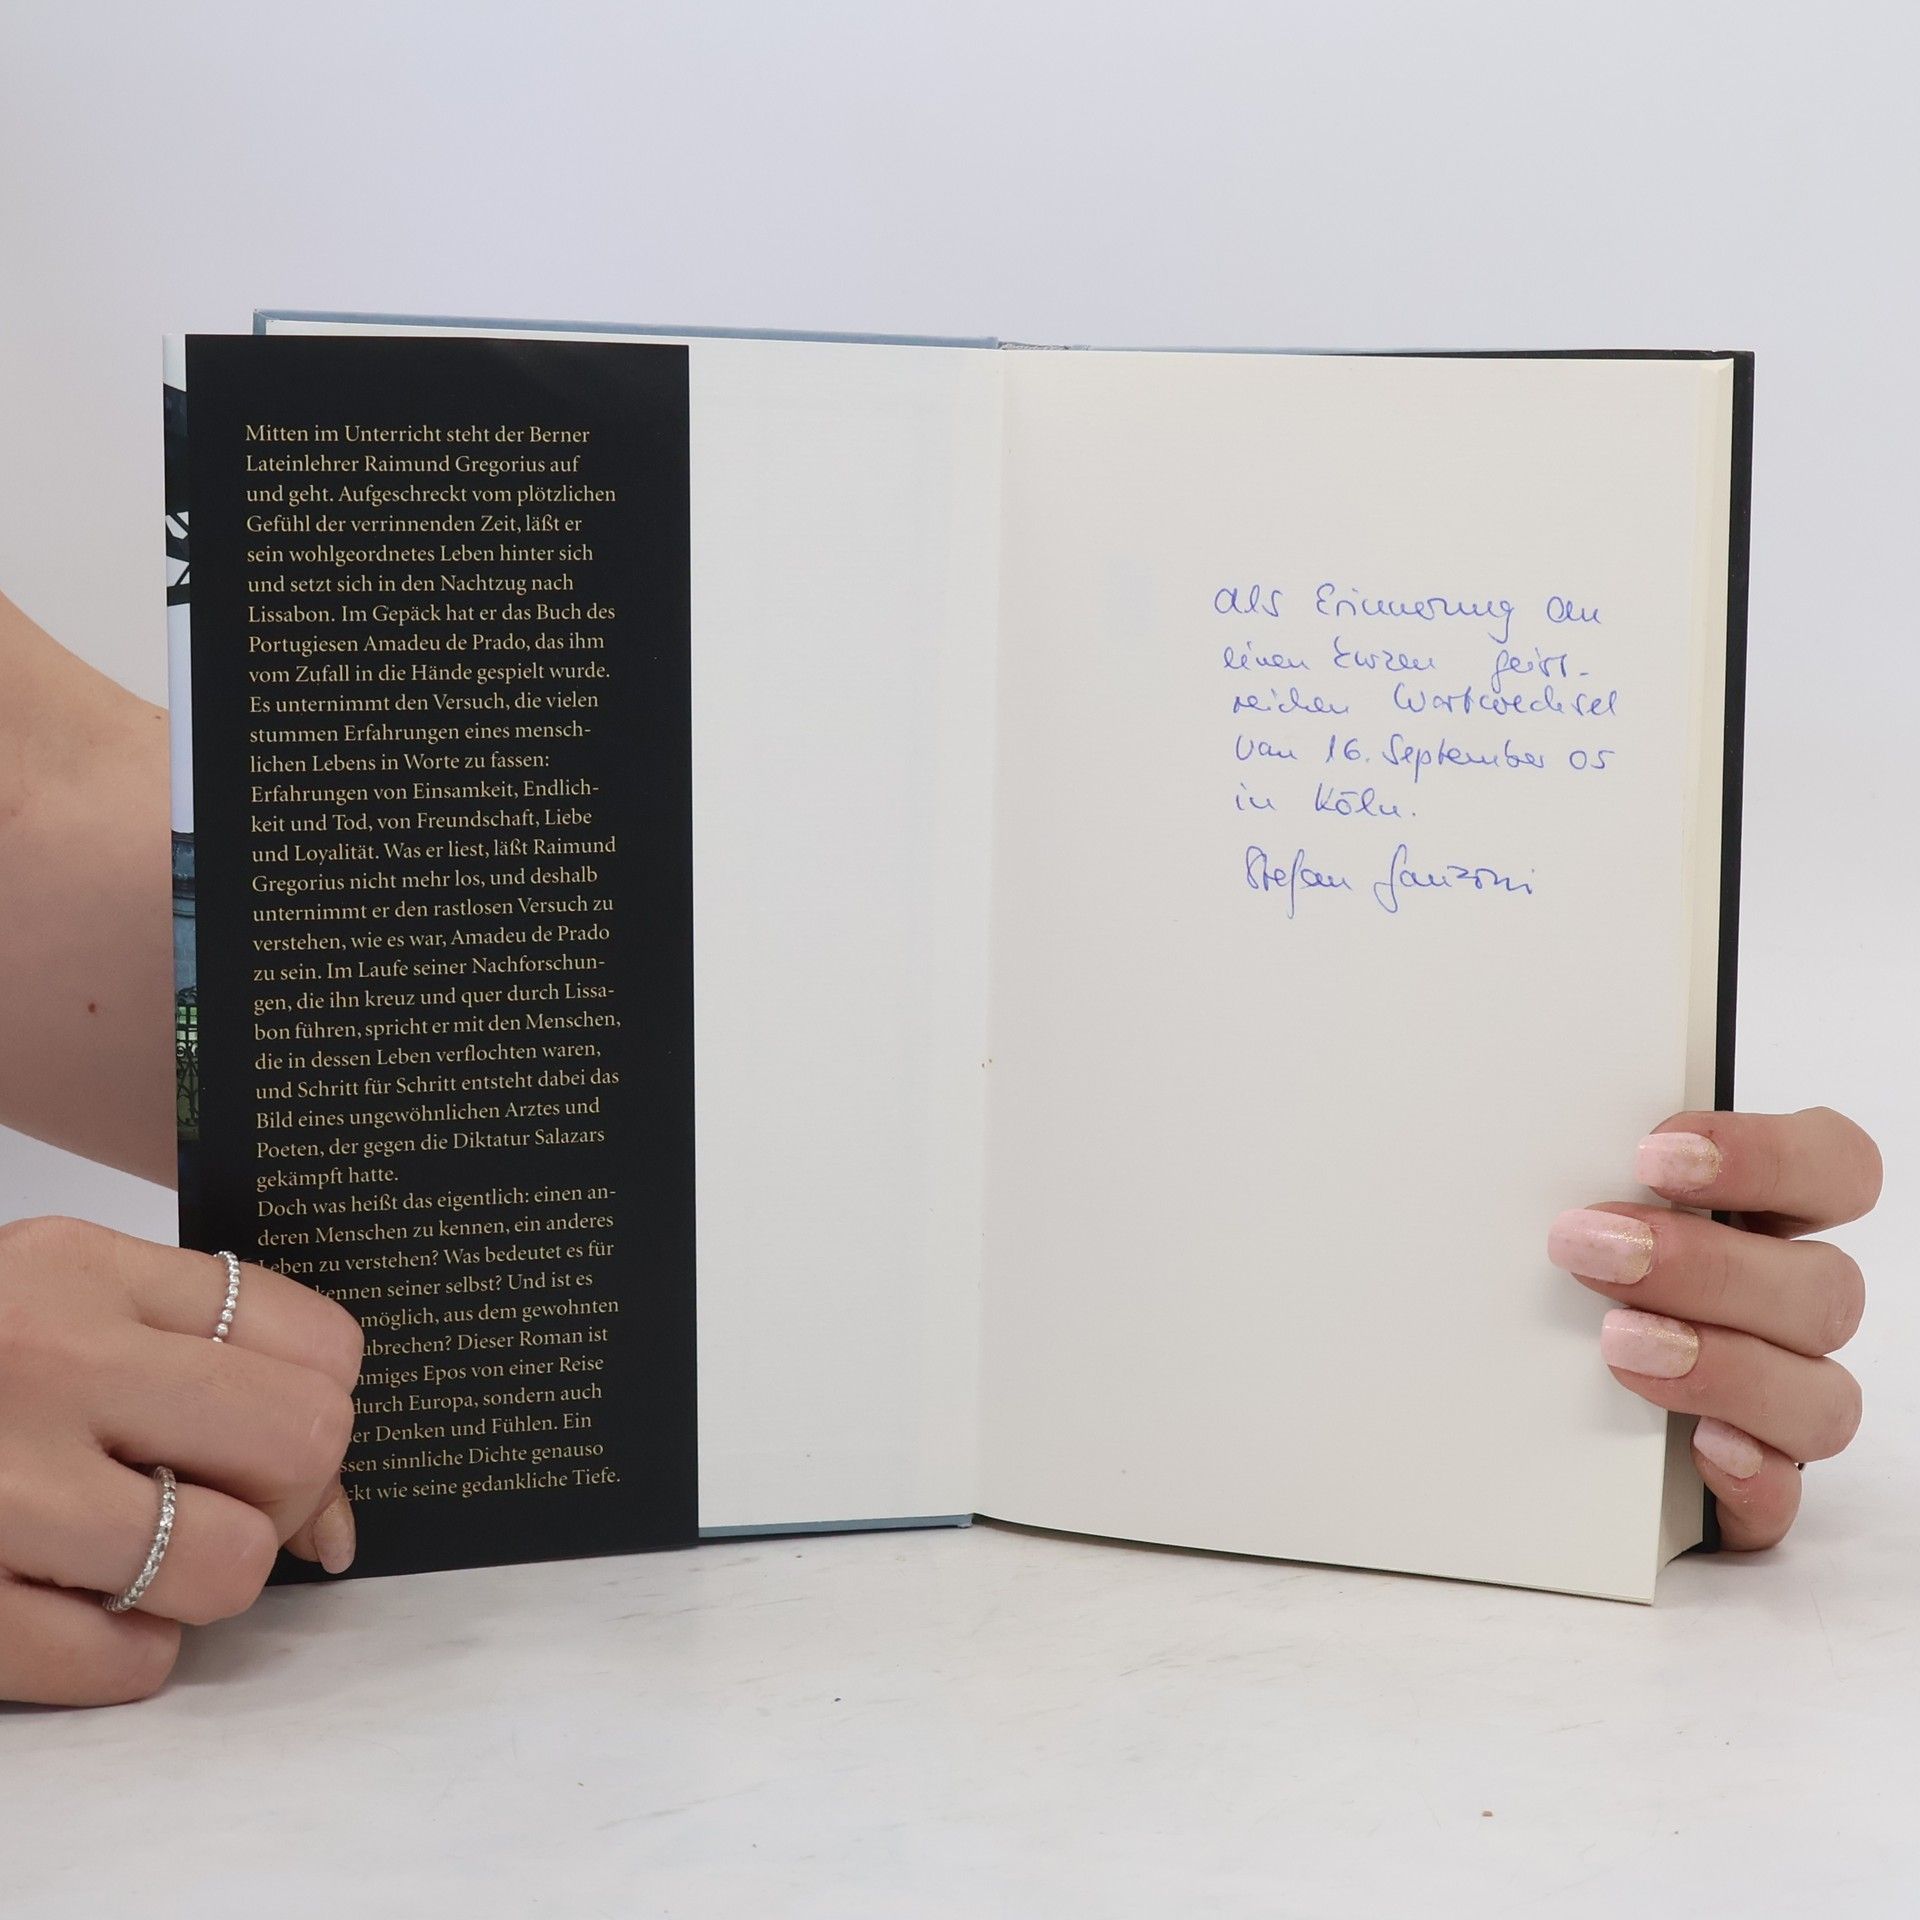 Mitten im Unterricht steht der Berner
Lateinlehrer Raimund Gregorius auf
und geht. Aufgeschreckt vom plötzlichen
Gefühl der verrinnenden Zeit, läßt er
sein wohlgeordnetes Leben hinter sich
und setzt sich in den Nachtzug nach
Lissabon. Im Gepäck hat er das Buch des
Portugiesen Amadeu de Prado, das ihm
vom Zufall in die Hände gespielt wurde.
Es unternimmt den Versuch, die vielen
stummen Erfahrungen eines mensch-
lichen Lebens in Worte zu fassen:
Erfahrungen von Einsamkeit, Endlich-
keit und Tod, von Freundschaft, Liebe
und Loyalität. Was er liest, läßt Raimund
Gregorius nicht mehr los, und deshalb
unternimmt er den rastlosen Versuch zu
verstehen, wie es war, Amadeu de Prado
zu sein. Im Laufe seiner Nachforschun-
gen, die ihn kreuz und quer durch Lissa-
bon führen, spricht er mit den Menschen,
die in dessen Leben verflochten waren,
und Schritt für Schritt entsteht dabei das
Bild eines ungewöhnlichen Arztes und
Poeten, der gegen die Diktatur Salazars
gekämpft hatte.
Doch was heißt das eigentlich: einen an-
deren Menschen zu kennen, ein anderes
Leben zu verstehen? Was bedeutet es für
kennen seiner selbst? Und ist es
möglich, aus dem gewohnten
ubrechen? Dieser Roman ist
miges Epos von einer Reise
durch Europa, sondern auch
er Denken und Fühlen. Ein
ssen sinnliche Dichte genauso
ckt wie seine gedankliche Tiefe.
Als Erinnerung an
einen kurzen geist-
reichen Wortwechsel
vom 16. September 05
in Köln.
Stefan